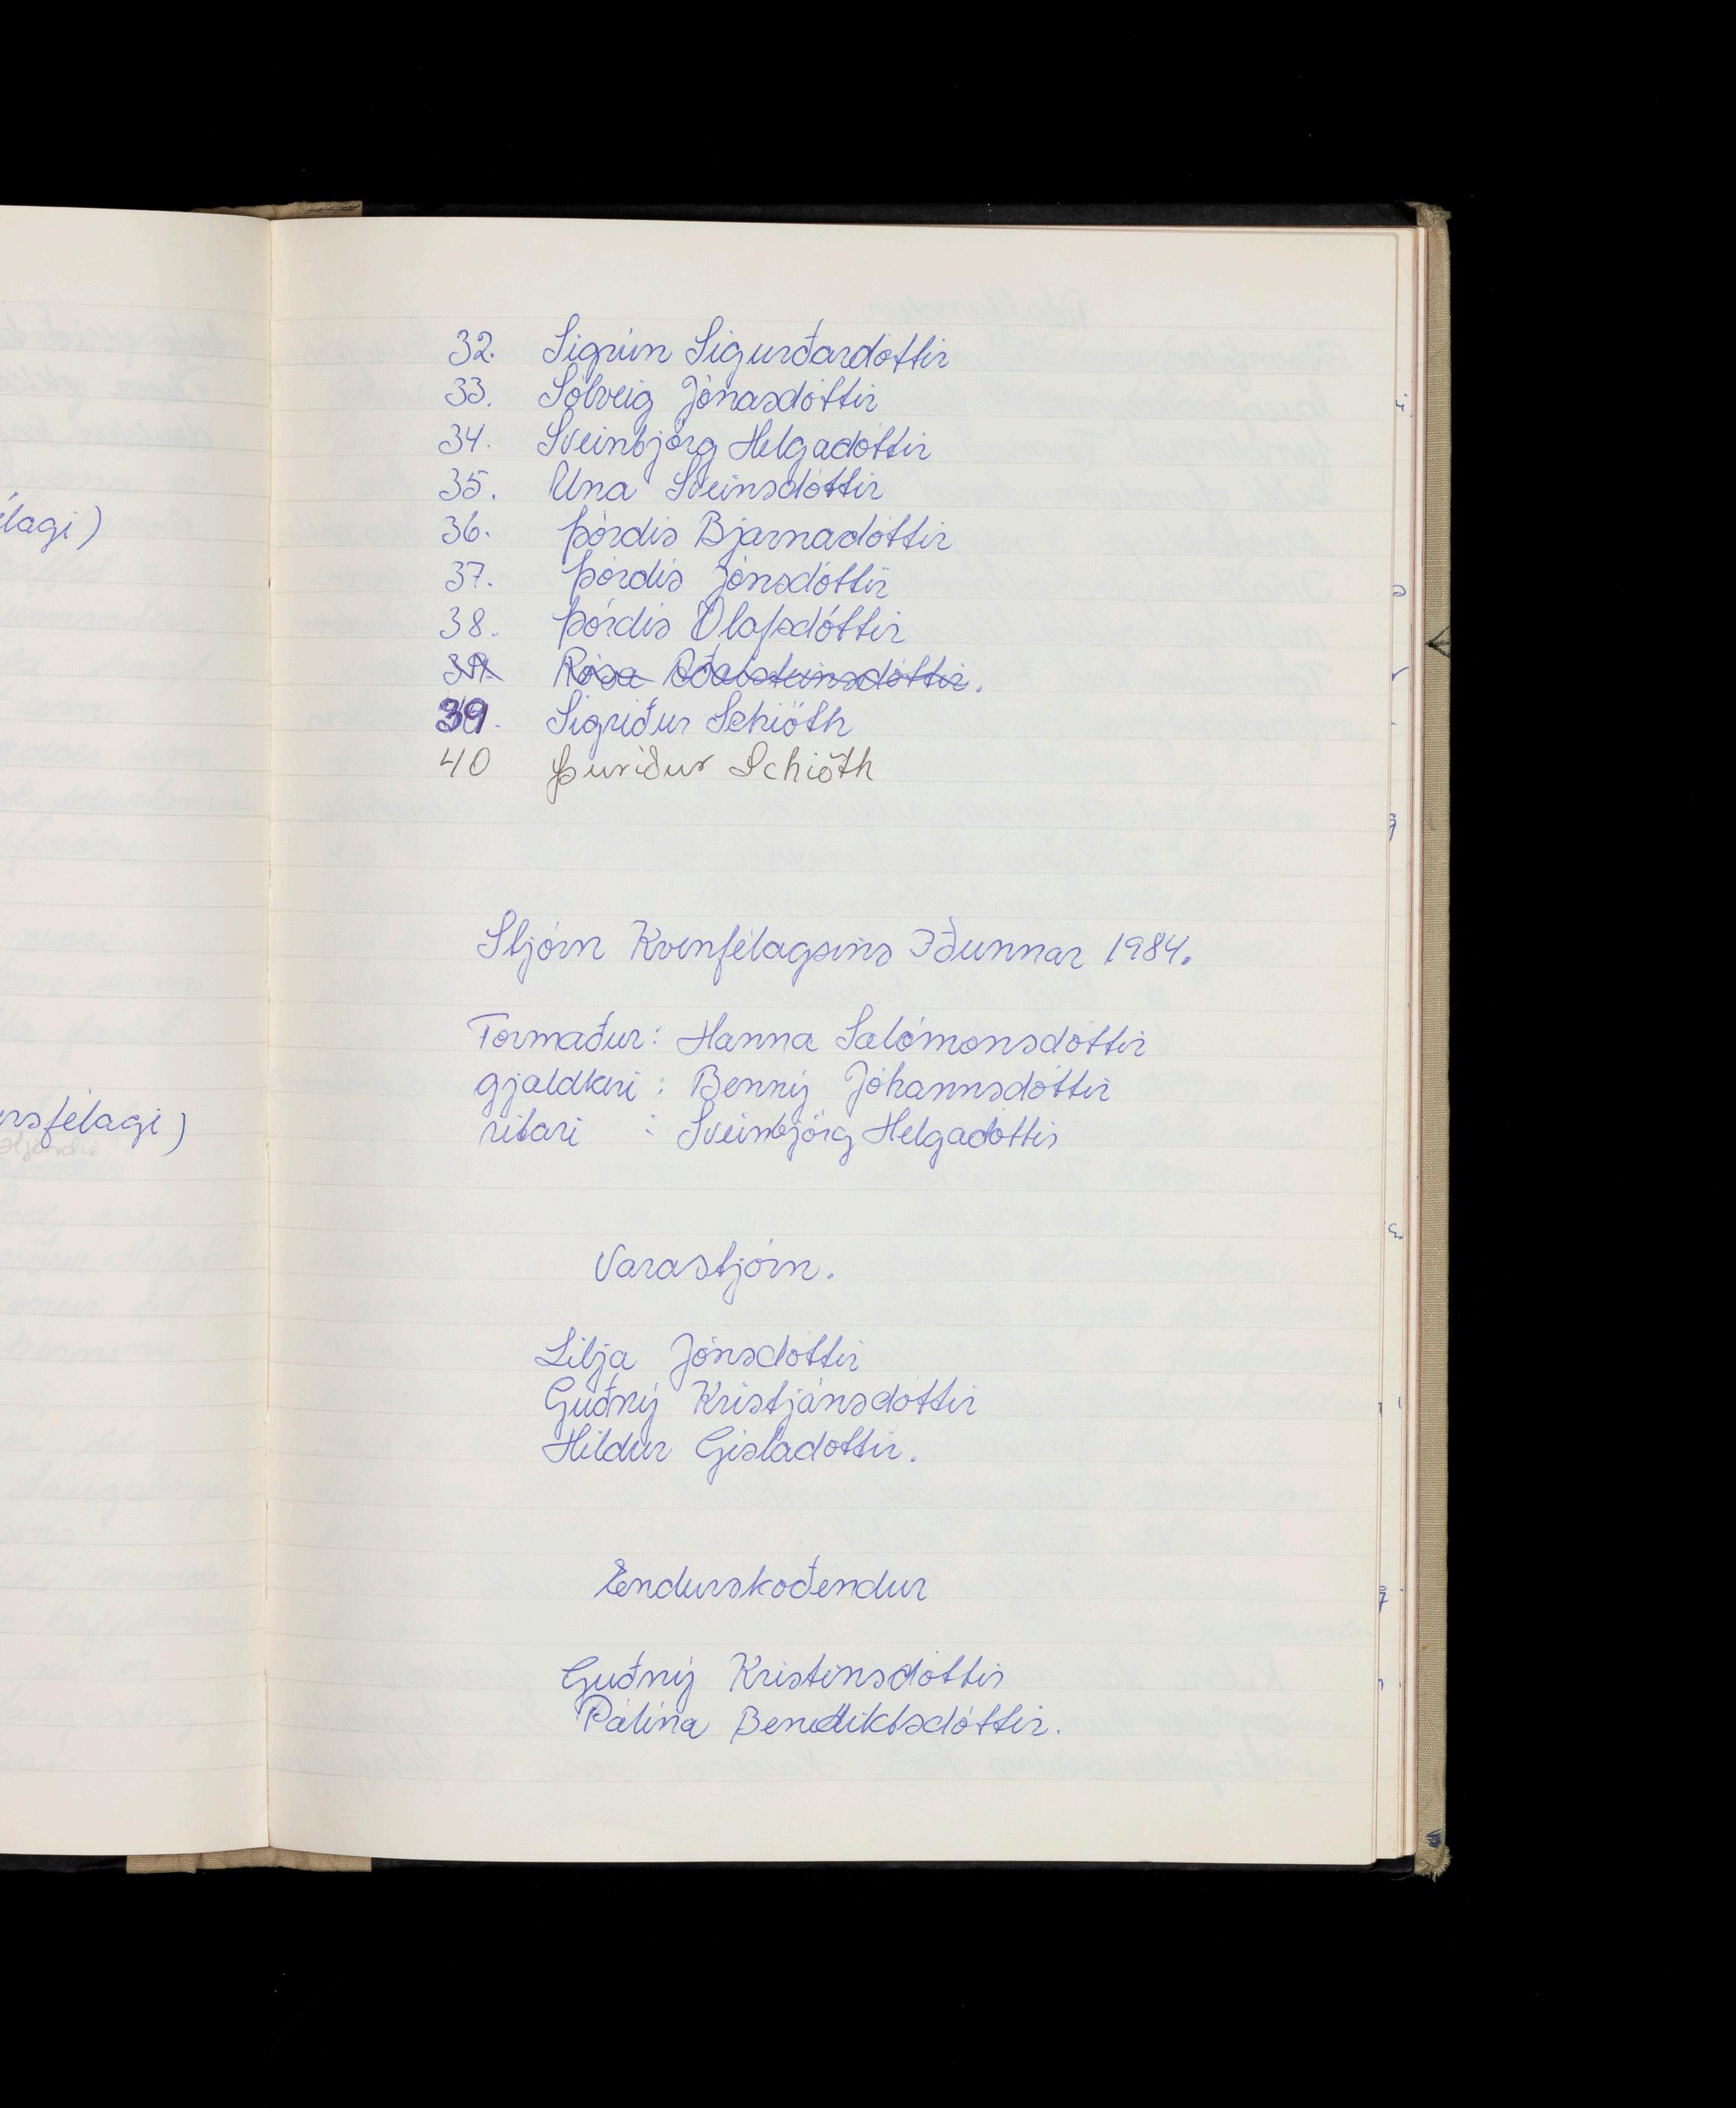 élagi)
rsfélagi)
32. Sigrún Sigurðardóttir
33. Sólveig Jónasdóttir
34. Sveinbjörg Helgadóttir
35. Una Sveinsdóttir
36. Þórdís Bjarnadóttir
37. Þórdís Jónsdóttir
38. Þórdís Ólafsdóttir
39. Rósa Aðalsteinsdóttir.
39. Sigríður Schiöth
40 Þuríður Schiöth
Stjórn Kvenfélagsins Iðunnar 1984.
Formaður: Hanna Salómonsdóttir
gjaldkeri: Benný Jóhannsdóttir
ritari : Sveinbjörg Helgadóttir
Varastjórn.
Lilja Jónsdóttir
Guðný Kristjánsdóttir
Hildur Gísladóttir.
Endurskoðendur
Guðný Kristinsdóttir
Pálína Benediktsdóttir.